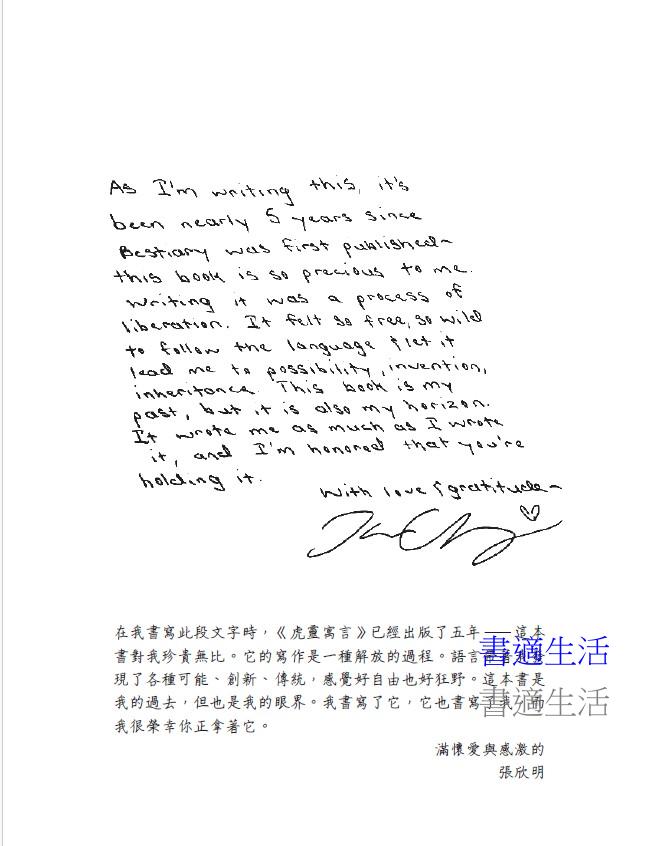 As I'm writing this, it's
been nearly 5 years since
Bestiary was first published~
this book is so precious to me.
Writing it was a process of
liberation. It felt so free, so wild
to follow the language & let it
lead me to possibility, invention,
inheritance. This book is my
past, but it is also my horizon.
It wrote me as much as I wrote
it, and I'm honored that you're
holding it.
With love & gratitude~
在我書寫此段文字時，《虎靈寓言》已經出版了五年——這本
書對我珍貴無比。它的寫作是一種解放的過程。語言
現了各種可能、創新、傳統，感覺好自由也好狂野。這本書是
我的過去，但也是我的眼界。我書寫了它，它也書寫了我，而
我很榮幸你正拿著它。
滿懷愛與感激的
張欣明
書適生活
書適生活